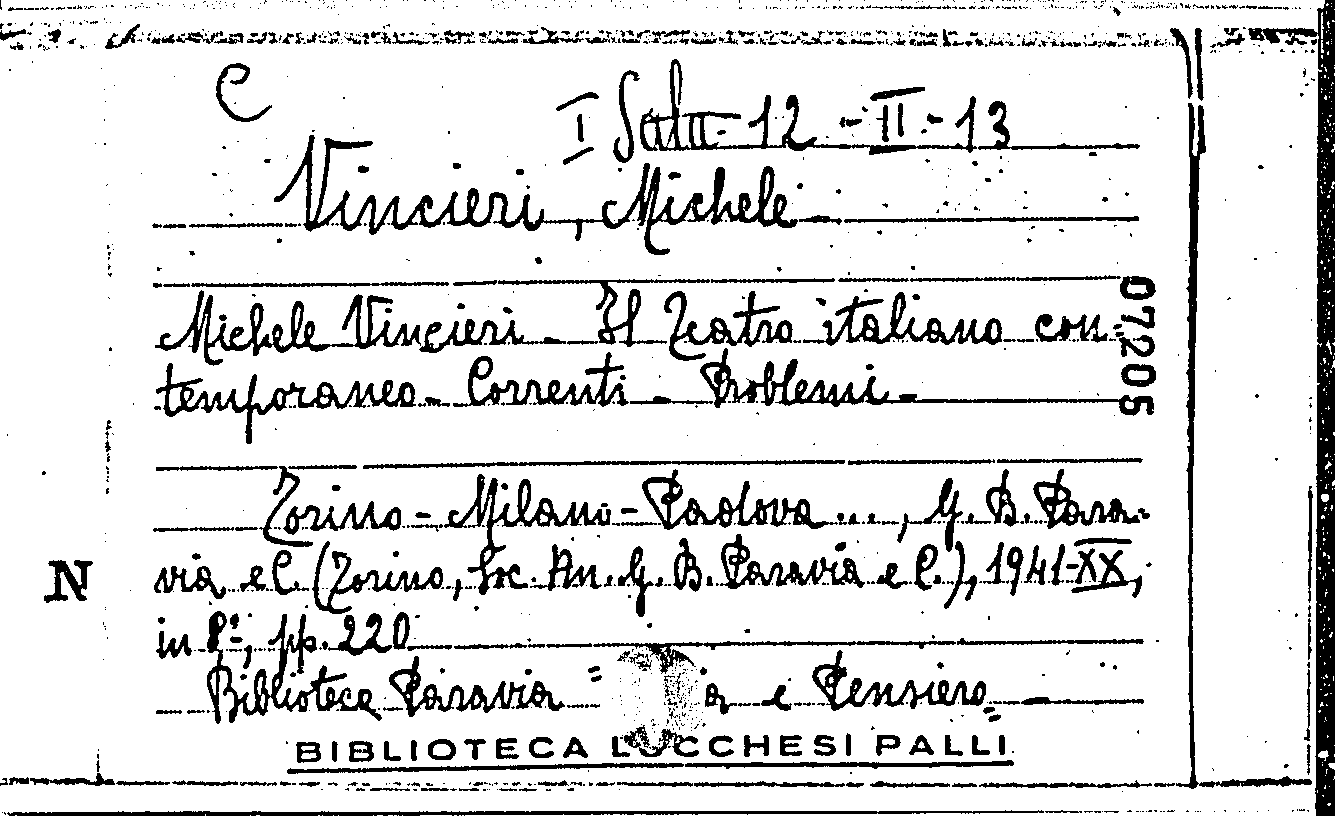 C
I Sala-12-II-13
Vincieri, Michele-
Michele Vincieri- Il Teatro italiano con-
temporaneo- Correnti- Problemi-
07205
Torino-Milano-Padova..., G. B. Para-
via e C. (Torino, Soc. An. G. B. Paravia e C.), 1941-XX,
N
in 8º, pp. 220
Biblioteca Paravia = e Pensiero=
BIBLIOTECA LUCCHESI PALLI